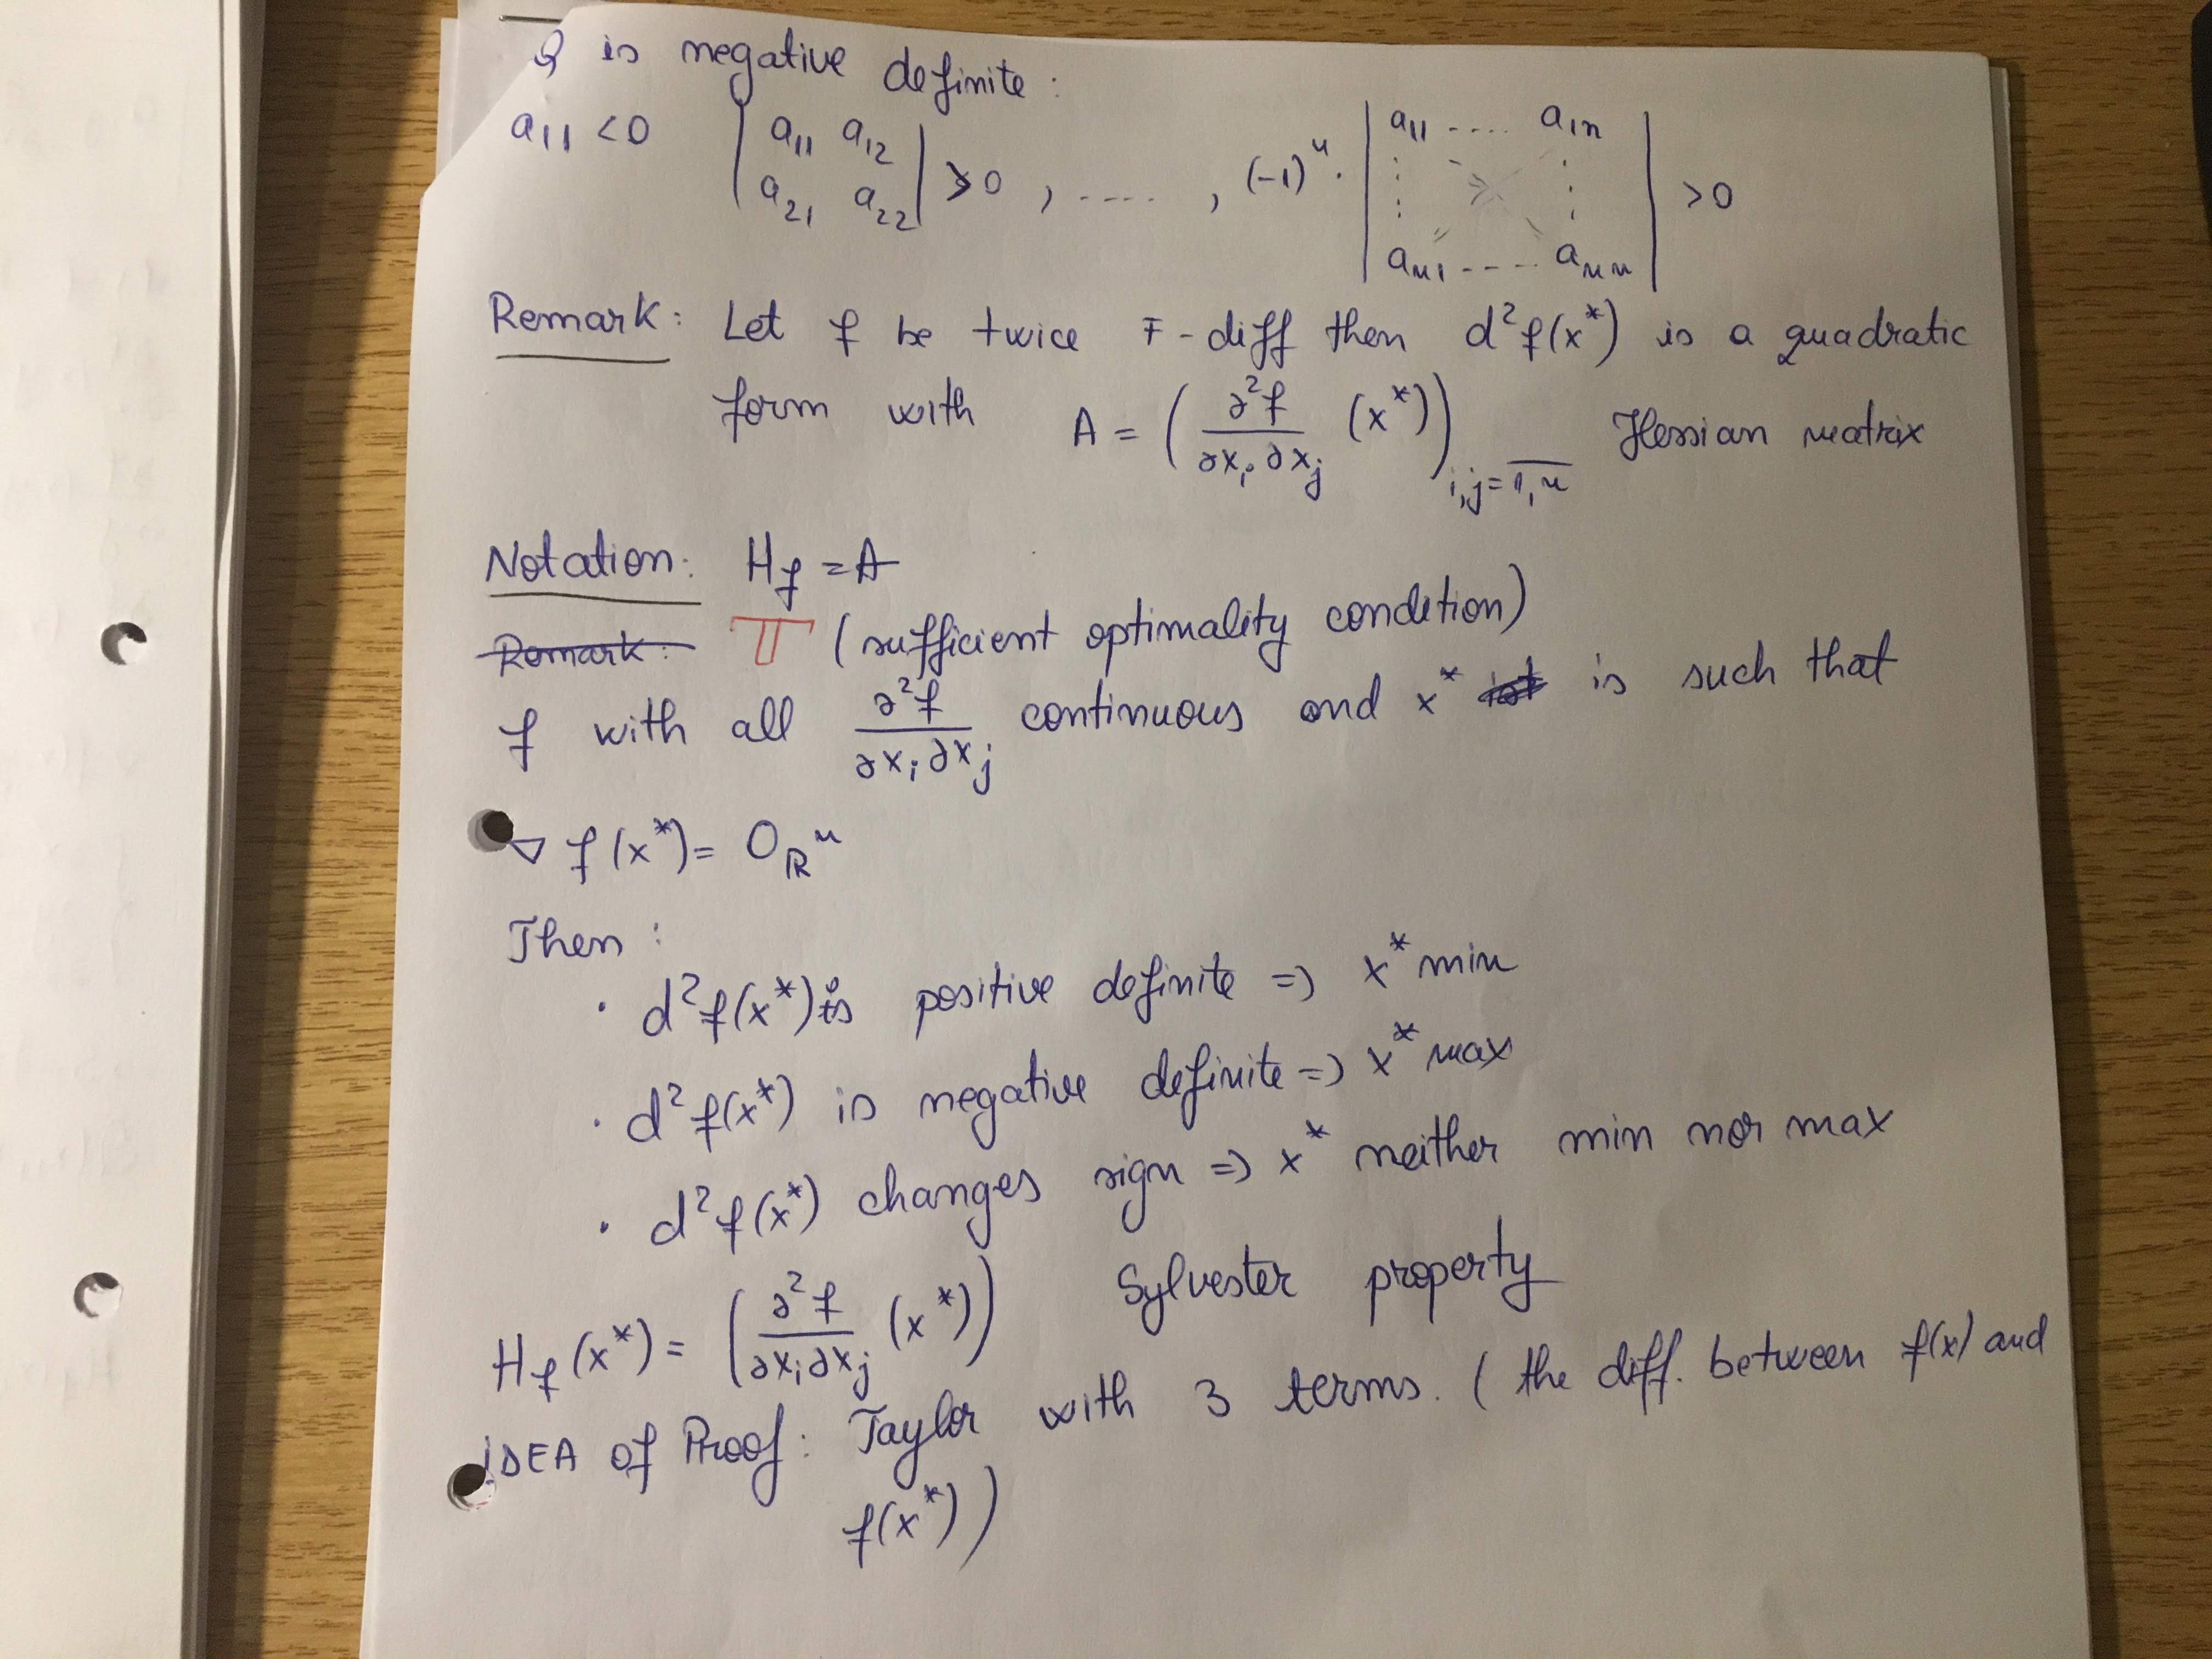 Q is negative definite:
a11 <0 | a11 a12 a21 a22 | >0 , ---- , (-1)^n . | a11 ---- a1n ⋮ ⋮ an1 ---- ann | >0
Remark: Let f be twice F-diff then d²f(x*) is a quadratic
form with A = ( ∂²f / ∂xi ∂xj (x*) ) i,j=1,n Hessian matrix
Notation: Hf = A
Remark: T (sufficient optimality condition)
f with all ∂²f / ∂xi ∂xj continuous and x* is such that
∇ f(x*) = 0ℝ^n
Then :
· d²f(x*) is positive definite => x* min
· d²f(x*) is negative definite => x* max
· d²f(x*) changes sign => x* neither min nor max
Hf (x*) = ( ∂²f / ∂xi ∂xj (x*) ) Sylvester property
IDEA of Proof: Taylor with 3 terms. ( the diff. between f(x) and
f(x*) )